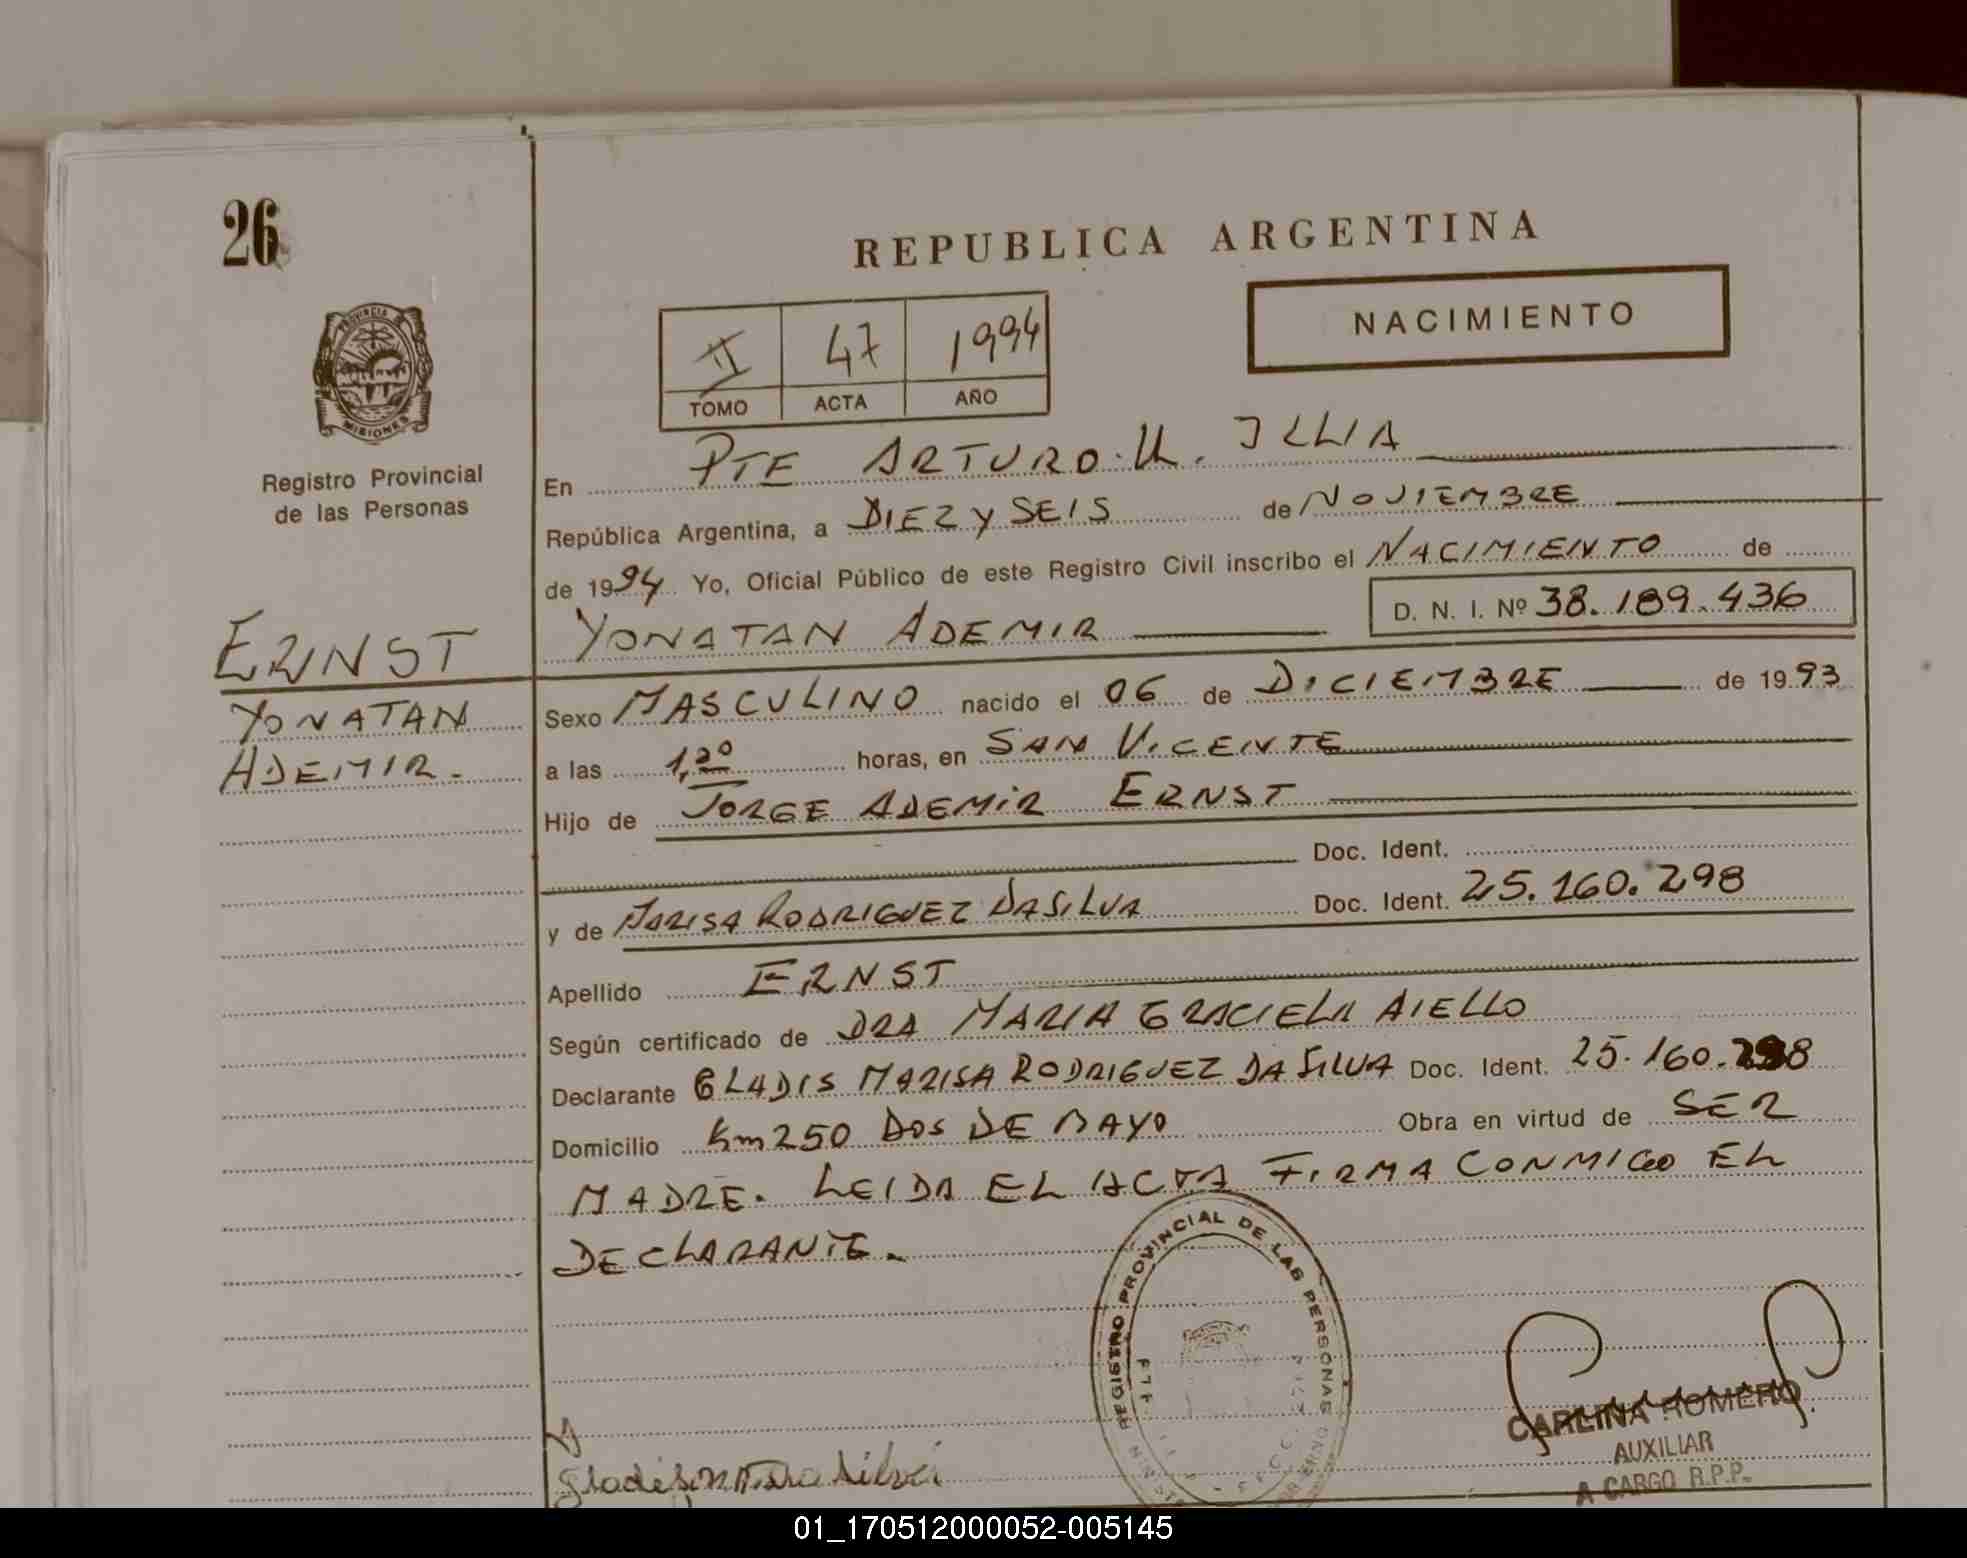 26
REPUBLICA ARGENTINA
NACIMIENTO
II 47 1994
TOMO ACTA AÑO
PROVINCIA DE
MISIONES
Registro Provincial
de las Personas
En PTE ARTURO U. ILLIA
República Argentina, a DIEZ y SEIS de NOVIEMBRE
de 1994 Yo, Oficial Público de este Registro Civil inscribo el NACIMIENTO de
D. N. I. Nº 38.189.436
YONATAN ADEMIR
ERNST
YONATAN
ADEMIR.
Sexo MASCULINO nacido el 06 de DICIEMBRE de 1993
a las horas, en SAN VICENTE
Hijo de JORGE ADEMIR ERNST
Doc. Ident.
y de MARISA RODRIGUEZ DASILVA Doc. Ident. 25.160.298
Apellido ERNST
Según certificado de DRA MARIA GRACIELA AIELLO
Declarante GLADIS MARISA RODRIGUEZ DA SILVA Doc. Ident. 25.160.298
Domicilio Km 250 DOS DE MAYO Obra en virtud de SER
MADRE. LEIDA EL ACTA FIRMA CONMIGO EL
DECLARANTE.
REGISTRO PROVINCIAL DE LAS PERSONAS
CARLINA ROMERO
AUXILIAR
A CARGO R.P.P.
01_170512000052-005145